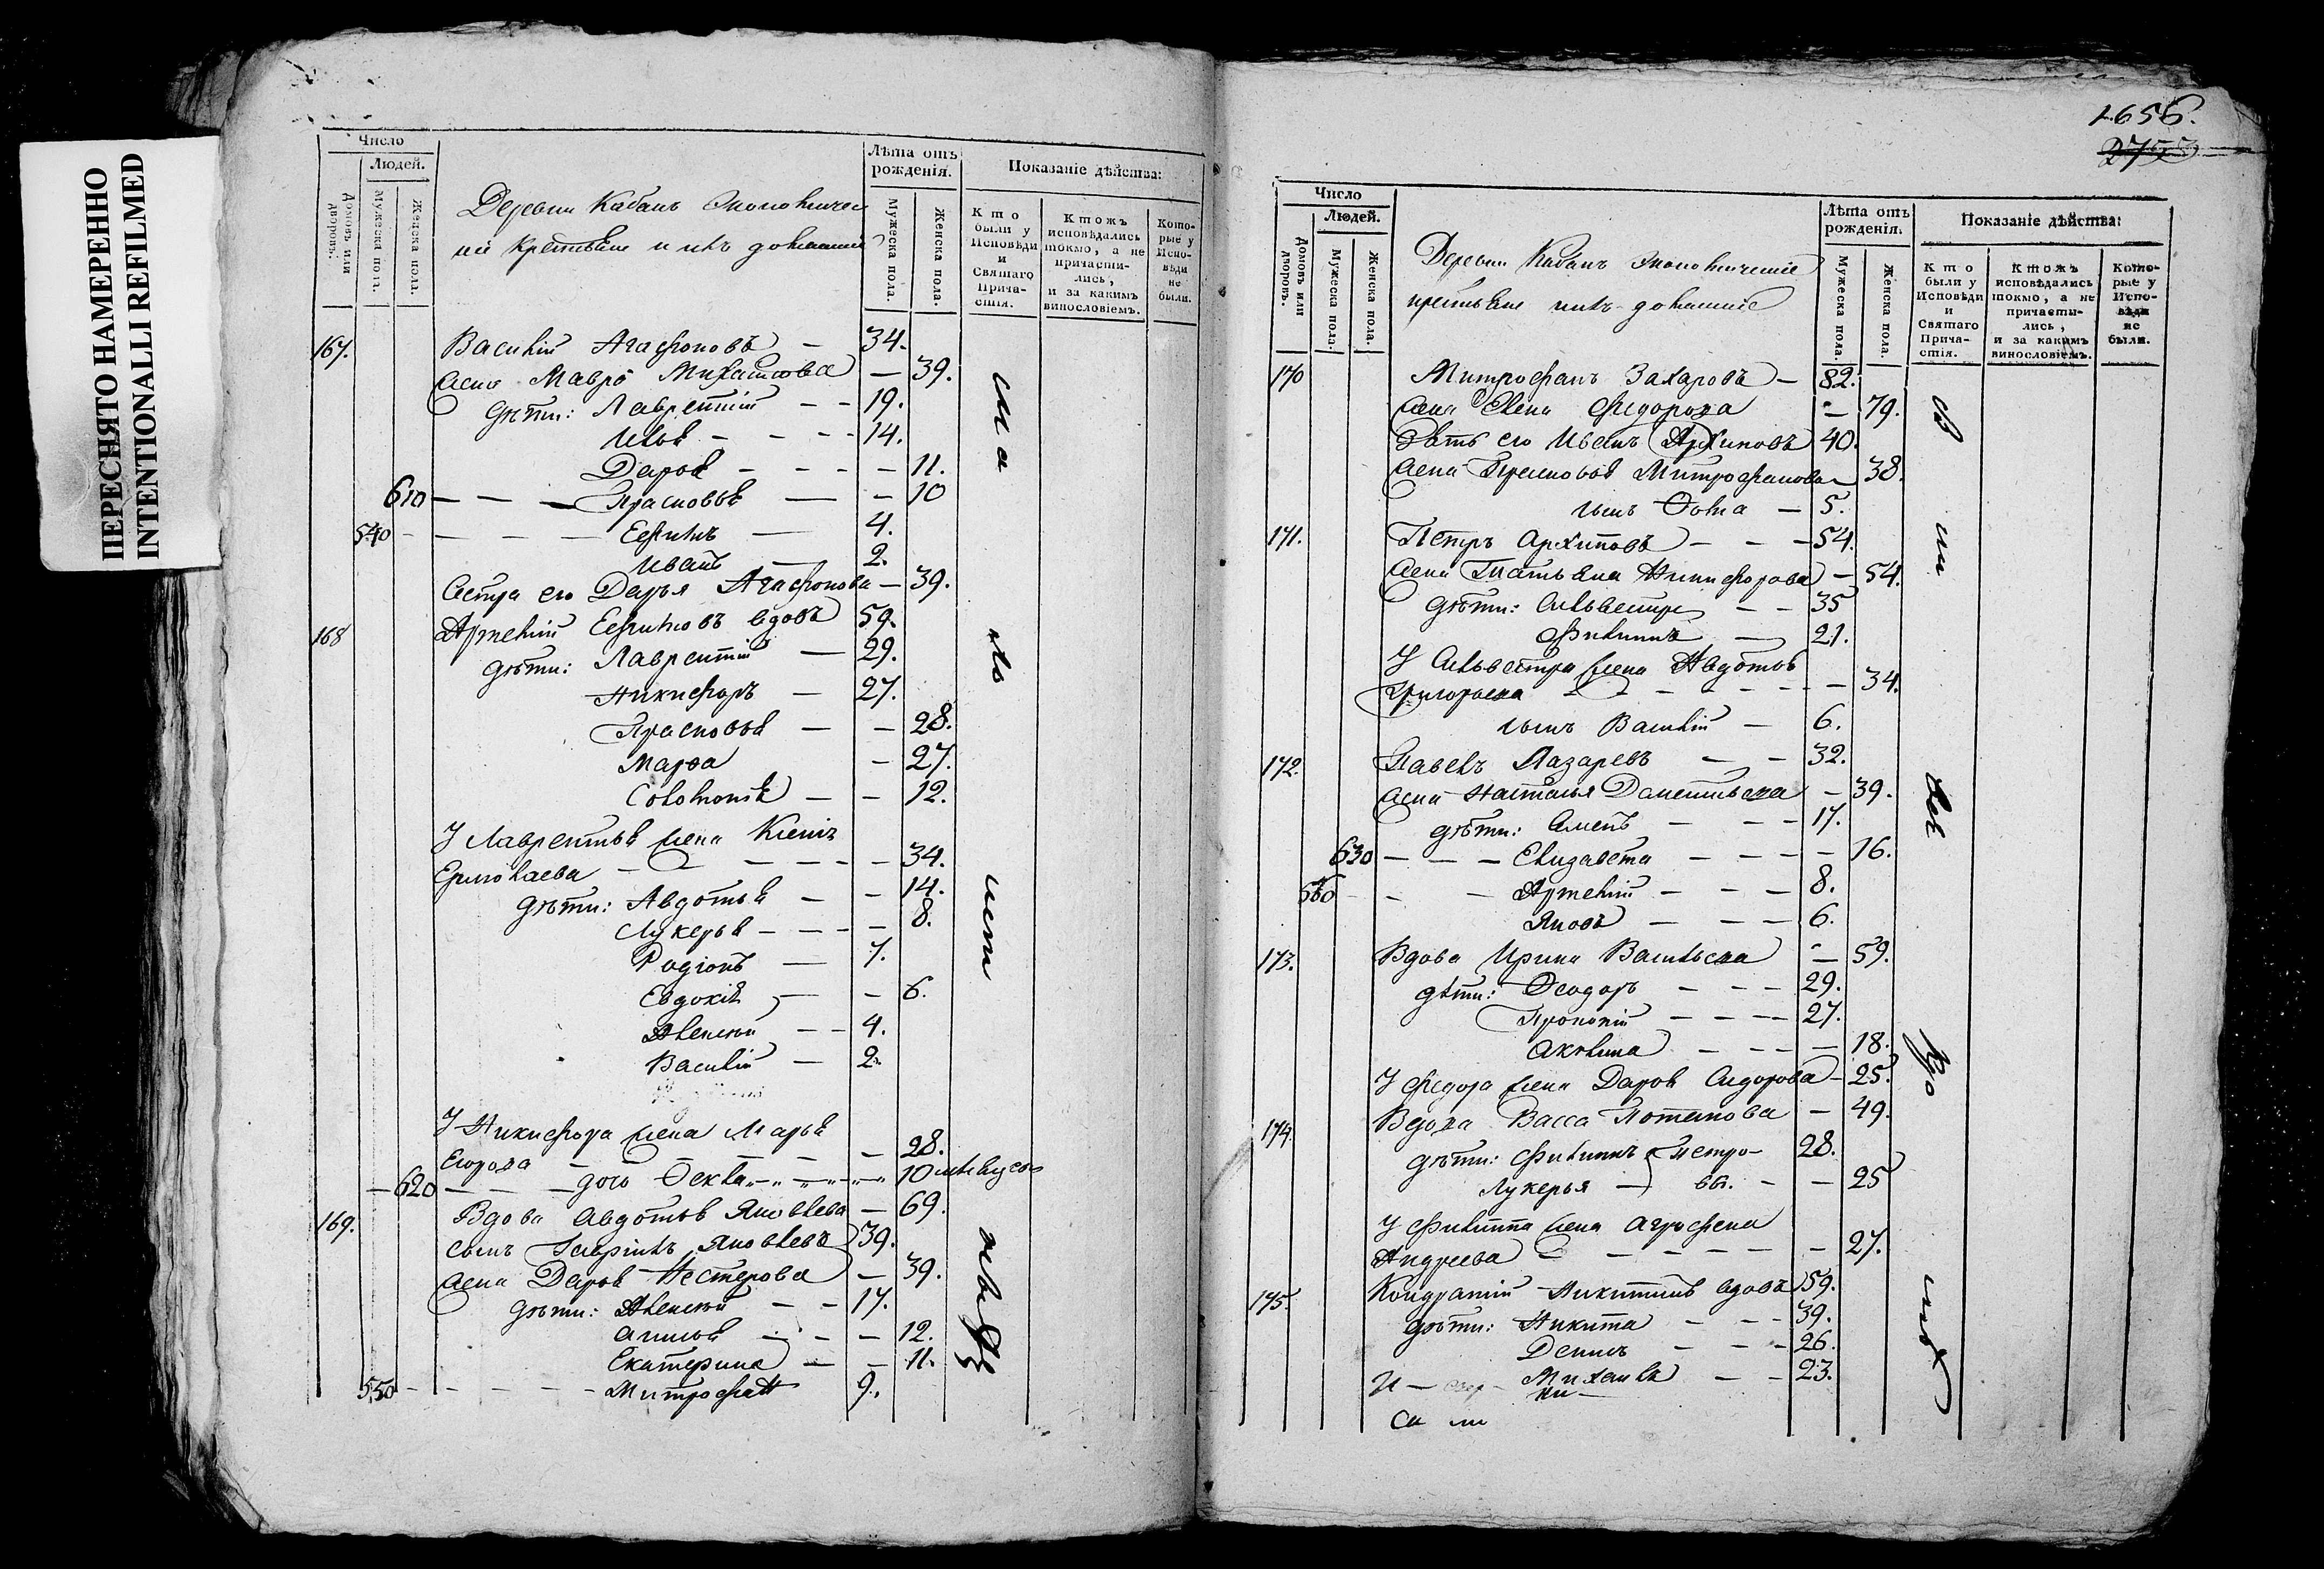 ПЕРЕСНЯТО НАМЕРЕННО
INTENTIONALLI REFILMED
Число
Людей.
Домовъ или дворовъ.
Мужеска пола.
Женска пола.
Деревни Кабанъ Экономическiи
крестьяне и ихъ домашнiи
Лѣта отъ рожденiя.
Мужеска пола.
Женска пола.
Показанiе дѣйства:
Кто были у Исповѣди и Святаго Причастiя.
Ктожъ исповѣдались токмо, а не причастились, и за какимъ винословiемъ.
Которые у Исповѣди не были.
167. Василiй Агафоновъ — 34.
Жена Мавра Михайлова — 39.
дѣти: Лаврентiй — — 19.
Илья — — — 14.
Дарья — — — 11.
610 — — — Прасковья — — 10
540 — — — Ефимъ — 4.
Иванъ — 2.
Сестра его Дарья Агафонова — 39.
168 Артемiй Ефимовъ вдовъ 59.
дѣти: Лаврентiй — 29.
Никифоръ — 27.
Прасковья — — 28.
Марѳа — 27.
Соломонiя — — 12.
У Лаврентья жена
Ермолаева — — — — 34.
дѣти: Авдотья — — 14.
Лукерья — — — 8.
Родiонъ — 7.
Евдокiя — — 6.
Алексѣй — — 4.
Василiй — 2.
У Никифора жена Марья
Егорова — — — — 28.
620 — — — дочь Ѳекла — — 10
169. Вдова Авдотья Яковлева — 69.
сынъ Яковлевъ 39.
Жена Дарья Нестерова — 39.
дѣти: Алексѣй — — 17.
— — 12.
Екатерина — — 11.
550 — — — — Митрофанъ 9.
1656.
2753
Число
Людей.
Домовъ или дворовъ.
Мужеска пола.
Женска пола.
Деревни Кабанъ Экономическiе
крестьяне ихъ домашнiе
Лѣта отъ рожденiя.
Мужеска пола.
Женска пола.
Показанiе дѣйства:
Кто были у Исповѣди и Святаго Причастiя.
Ктожъ исповѣдались токмо, а не причастились, и за какимъ винословiемъ.
Которые у Исповѣди не были.
170 Митрофанъ Захаровъ — 82.
Жена Елена Федорова — 79.
Зять его Иванъ Архиповъ 40.
Жена Прасковья Митрофанова — 38.
сынъ Ѳома — 5.
171. Петръ Архиповъ — — — 54.
Жена Татьяна Никифорова — 54.
дѣти: Сильвестръ — — 35
Филиппъ — 21.
У Сильвестра жена Авдотья
Григорьева — — — — — 34.
сынъ Василiй — 6.
172. Павелъ Лазаревъ — — 32.
Жена Наталья Дементьева — 39.
дѣти: Семенъ — — — 17.
630 — — — Елизавета — — — — 16.
560 — — — Артемiй — — — 8.
Яковъ — — — 6.
173. Вдова Ирина Васильева — 59.
дѣти: Ѳеодоръ — — — 29.
Прокопiй — — — 27.
Акилина — — — — 18.
У Федора жена Дарья Сидорова — 25.
174. Вдова Васса Потапова — 49.
дѣти: Филиппъ Петро- 28.
Лукерья — вы. — — 25
У Филиппа жена Аграфена
Андреева — — — — — 27.
175. Кондратiй Никитинъ вдовъ 59.
дѣти: Никита — — — 39.
Денисъ — — — 26.
Михаилъ — — 23.